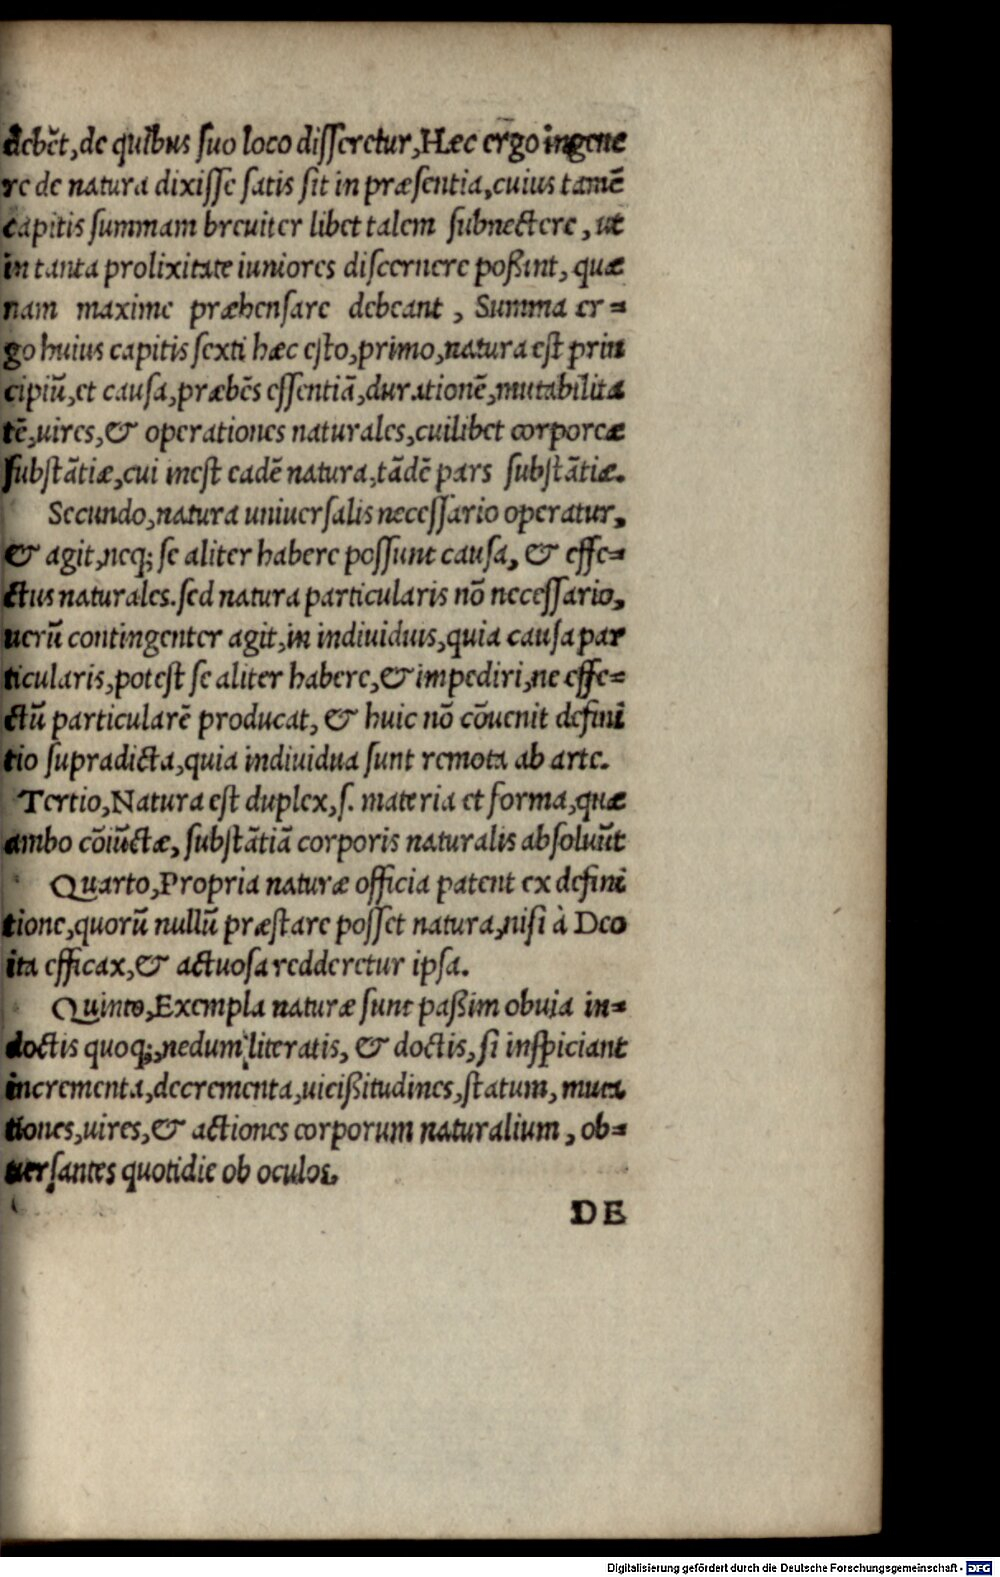 debēt, de quibus suo loco disseretur, Hæc ergo in gene
re de natura dixisse satis sit in præsentia, cuius tamē
capitis summam breuiter libet talem subnectere, ut
in tanta prolixitate iuniores discernere poßint, quæ
nam maxime præhensare debeant, Summa er=
go huius capitis sexti hæc esto, primo, natura est prin
cipiū, et causa, præbēs essentiā, durationē, mutabilita
tē, uires, & operationes naturales, cuilibet corporeæ
substātiæ, cui inest eadē natura, tādē pars substātiæ.
Secundo, natura uniuersalis necessario operatur,
& agit, neq; se aliter habere possunt causa, & effe=
ctus naturales. sed natura particularis nō necessario,
uerū contingenter agit, in indiuiduis, quia causa par
ticularis, potest se aliter habere, & impediri, ne effe=
ctū particularē producat, & huic nō cōuenit defini
tio supradicta, quia indiuidua sunt remota ab arte.
Tertio, Natura est duplex, s. materia et forma, quæ
ambo cōiūctæ, substātiā corporis naturalis absoluūt
Quarto, Propria naturæ officia patent ex defini
tione, quorū nullū præstare posset natura, nisi à Deo
ita efficax, & actuosa redderetur ipsa.
Quinto, Exempla naturæ sunt paßim obuia in=
doctis quoq;, nedum literatis, & doctis, si inspiciant
incrementa, decrementa, uicißitudines, statum, muta
tiones, uires, & actiones corporum naturalium, ob=
uersantes quotidie ob oculos.
DE
Digitalisierung gefördert durch die Deutsche Forschungsgemeinschaft - DFG